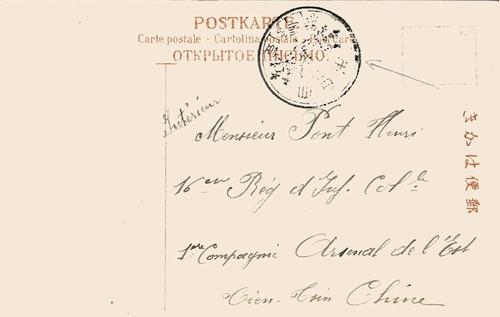 POSTKARTE
Carte postale - Cartolina postale - Post Card
ОТКРЫТОЕ ПИСЬМО.
Intérieur
Monsieur Pont Henri
16eme Rég d'Inf. Colle
1ere Compagnie Arsenal de l'Est
Tien-Tsin Chine
きかは便郵